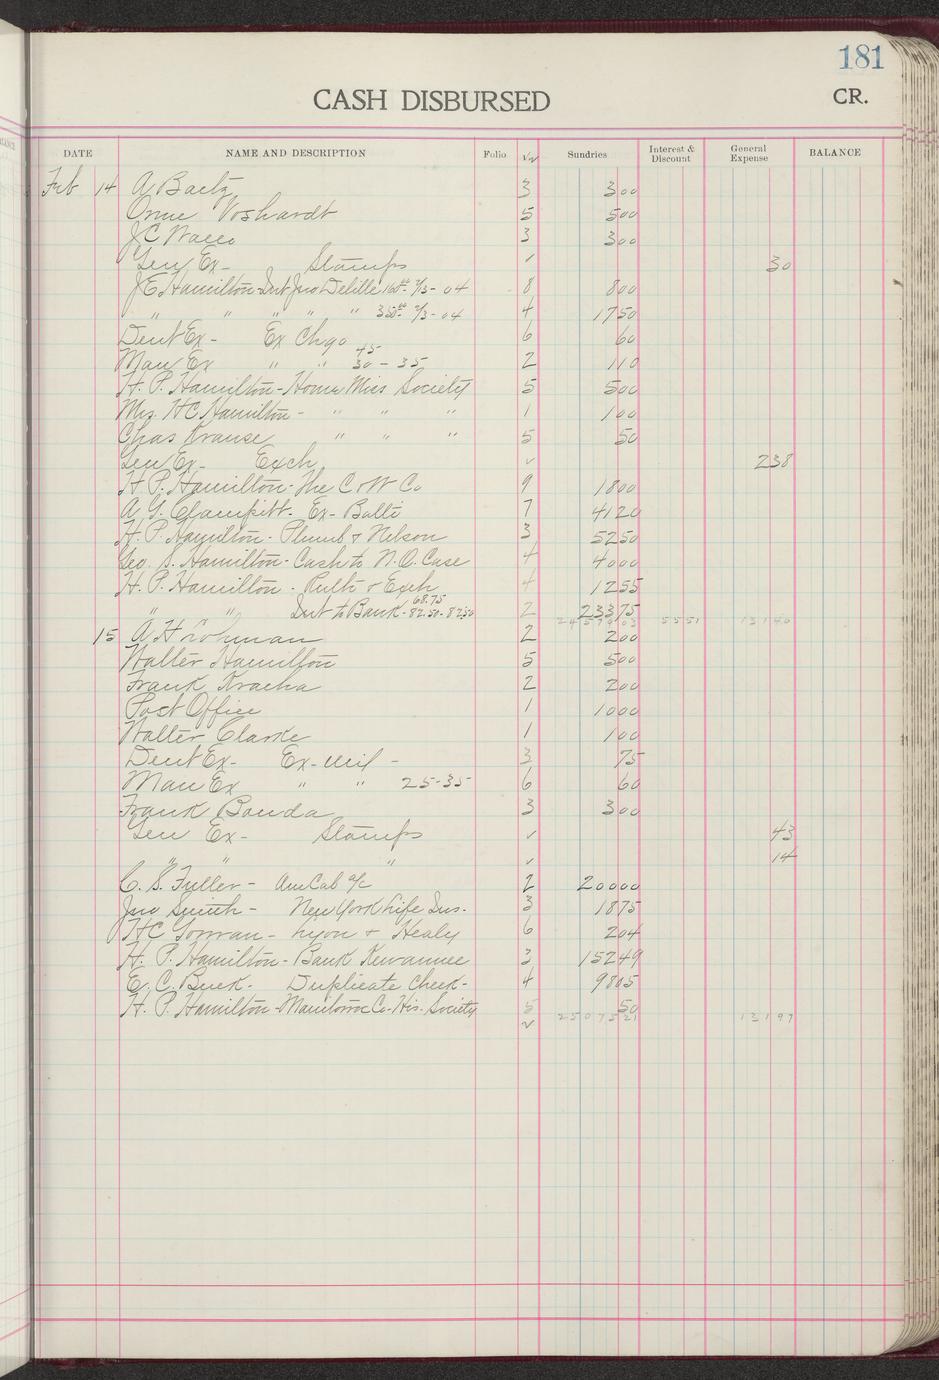 181
CASH DISBURSED
CR.
DATE NAME AND DESCRIPTION Folio Vr Sundries Interest & Discount General Expense BALANCE
Feb 14 A Baetz 3 300
Orme Voshardt 5 500
J C 3 300
Gen Ex - Stamps ✓ 30
J E Hamilton - Int Jno Delille 160.00 2/13 - 04 8 800
" " " " " 350.00 2/3 - 04 4 1750
Dent Ex - Ex Chgo 6 60
45
Man Ex " " 30 - 35 2 110
H. P. Hamilton - Home Miss Society 5 500
Mrs. H C Hamilton - " " " 1 100
Chas Krause " " " 5 50
Gen Ex - Exch ✓ 238
H. P. Hamilton - The C & W Co 9 1800
A. G. Clampitt - Ex - Balti 7 4120
H. P. Hamilton - Plumb & Nelson 3 5250
Geo. S. Hamilton - Cash to N. O. Case 4 4000
H. P. Hamilton - & Exch 4 1255
68.75
" " Int to Bank - 82.50 - 82.50 2 23375
2457903 5551 13140
15 A H Lohman 2 200
Walter Hamilton 5 500
Frank Kracha 2 200
Post Office 1 1000
Walter Clarke 1 100
Dent Ex - Ex - Mil - 3 75
Man Ex " " 25-35 6 60
Frank Banda 3 300
Gen Ex - Stamps ✓ 43
" " " ✓ 14
C. S. Fuller - Am Cab a/c 2 20000
Jno Smith - New York Life Ins. 3 1875
H C Gorman - Lyon & Healy 6 204
H. P. Hamilton - Bank Kewaunee 3 15249
E. C. Buck - Duplicate Check - 4 9805
H. P. Hamilton - Manitowoc Co. His. Society 5 50
✓ 2507521 13197